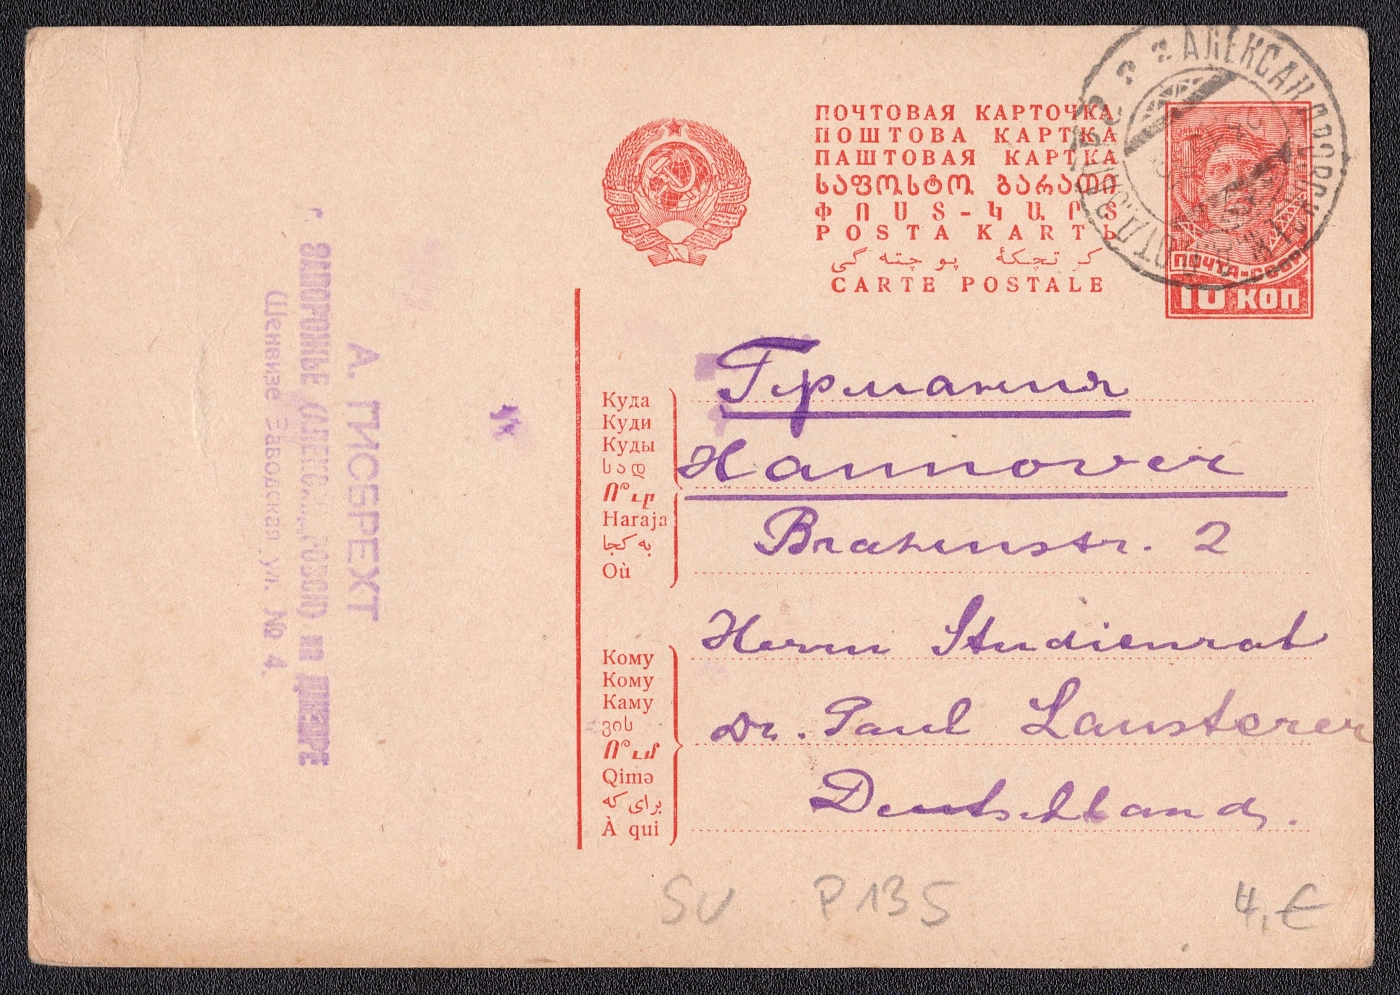 ПОЧТОВАЯ КАРТОЧКА
ПОШТОВА КАРТКА
ПАШТОВАЯ КАРТКА
ᲡᲐᲤᲝᲡᲢᲝ ᲑᲐᲠᲐᲗᲘ
ՓՈՍՏ-ԿԱՐՏ
POSTA KARTЬ
پوچته گی کرتچکهٔ
CARTE POSTALE
ПОЧТА-СССР
10 КОП
Германия
Hannover
Brahmstr. 2
Herrn Studienrat
Dr. Paul Lausterer
Deutschland.
Куда
Куди
Куды
სად
Ո՞ւր
Haraja
به کجا
Où
Кому
Кому
Каму
ვის
Ո՞ւմ
Qimə
برای که
À qui
А. ГИСБРЕХТ
г. ЗАПОРОЖЬЕ (АЛЕКСАНДРОВСК) на ДНЕПРЕ
Шенвизе Заводская ул. № 4.
SU P135
4,€